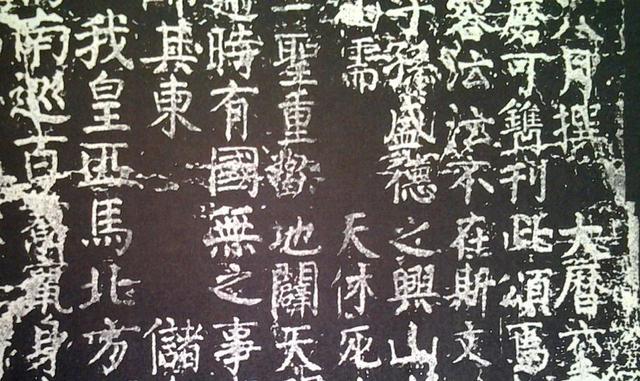 八月撰 大曆六
磨可鐫刊此頌焉
容沄沄不在斯文
子孫盛德之興山
濡 天休死
聖重歡地闢天
時有國無之事
其東 儲
我皇匹馬北方
南巡百寮竄身